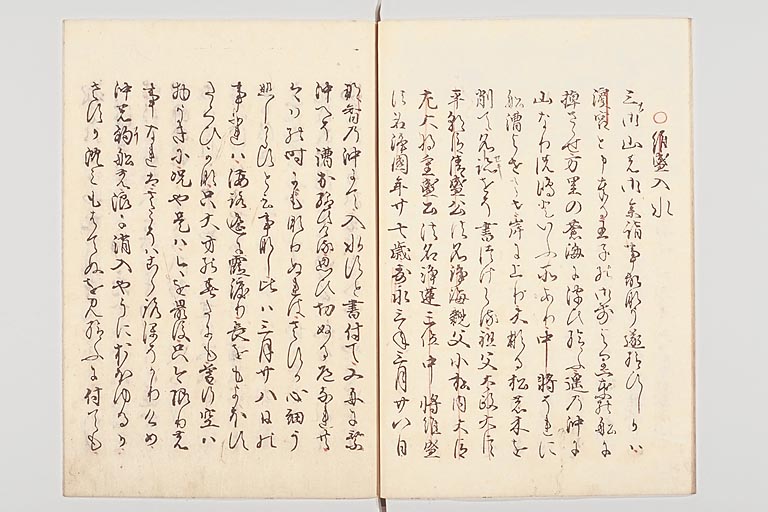 ○維盛入水
三の山の御参詣事故なく遂給ひしかは
濱宮と申王子の御前より一葉の船に
棹さして万里の蒼海に浮ひ給ふ遥の沖に
山なりの嶋と云所あり中将それに
船漕よせさせ岸に上り大なる松の木を
削て名籍をそ書付らる祖父太政大臣
平朝臣清盛公法名浄海親父小松内大臣
左大将重盛公法名浄蓮三位中将維盛
法名浄圓年廿七歳壽永三年三月廿八日
那智の沖にて入水すと書付て又舟に乗
沖へそ漕出給ひける思ひ切ぬる道なれとも
今はの時にも成ぬれはさすか心細う
悲しからすと云事なし比は三月廿八日の
事なれは海路遥に霞渡り哀をもよほす
たくひかな只大方の春たにも暮行空は
物うきに况や是は今を最後只今限の
事なれはさこそは心ほそかりけめ
沖の釣船の浪に消入やうにおほゆるか
さすか沈みもはてぬを見給ふに付ても